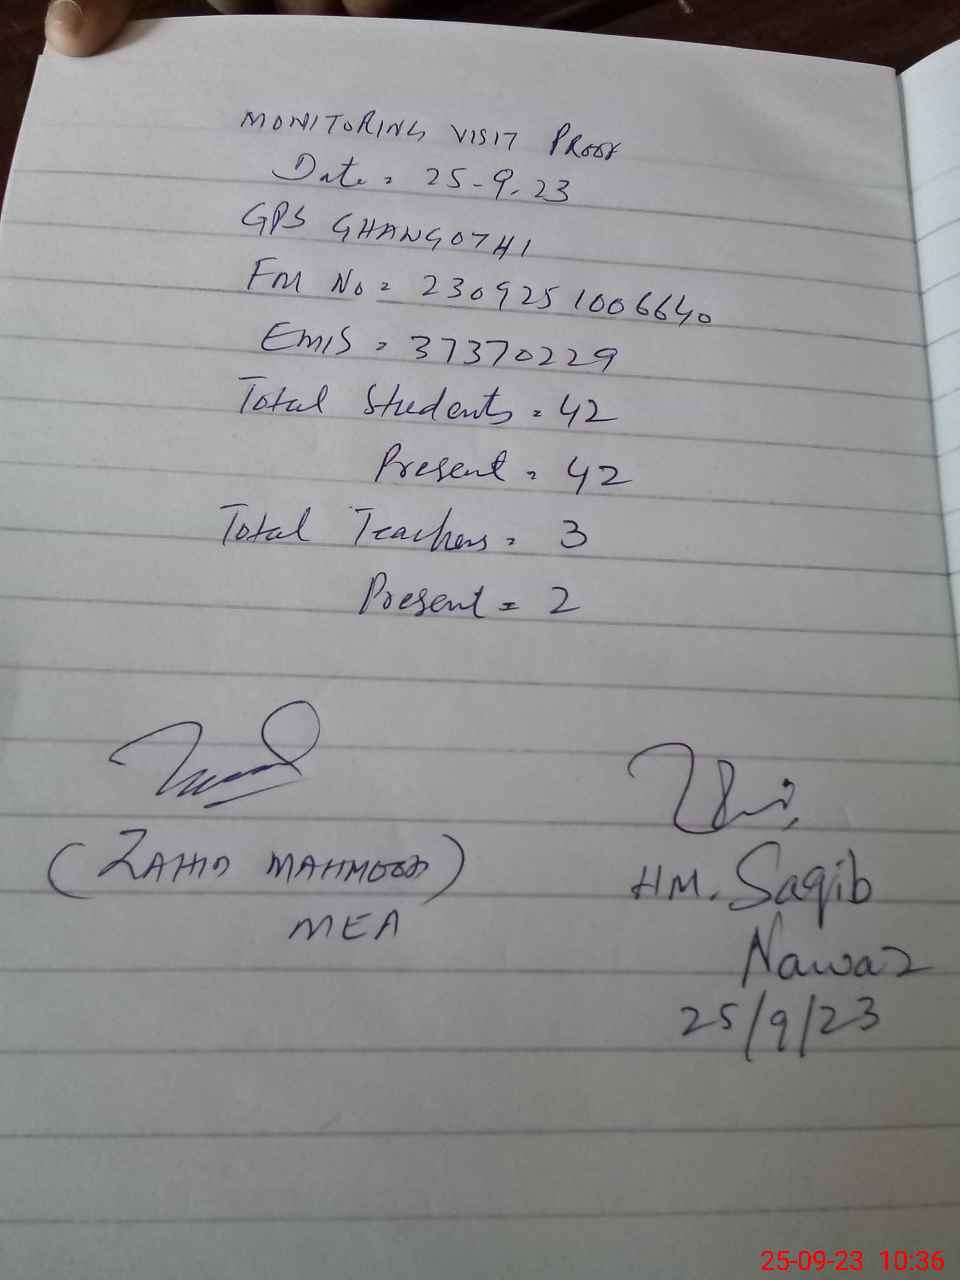 MONITORING VISIT PROOF
Date = 25-9-23
GPS GHANGOTHI
FM No = 2309251006640
EMIS = 37370229
Total Students = 42
Present = 42
Total Teachers = 3
Present = 2
(ZAHID MAHMOOD)
MEA
HM. Saqib
Nawaz
25/9/23
25-09-23 10:36